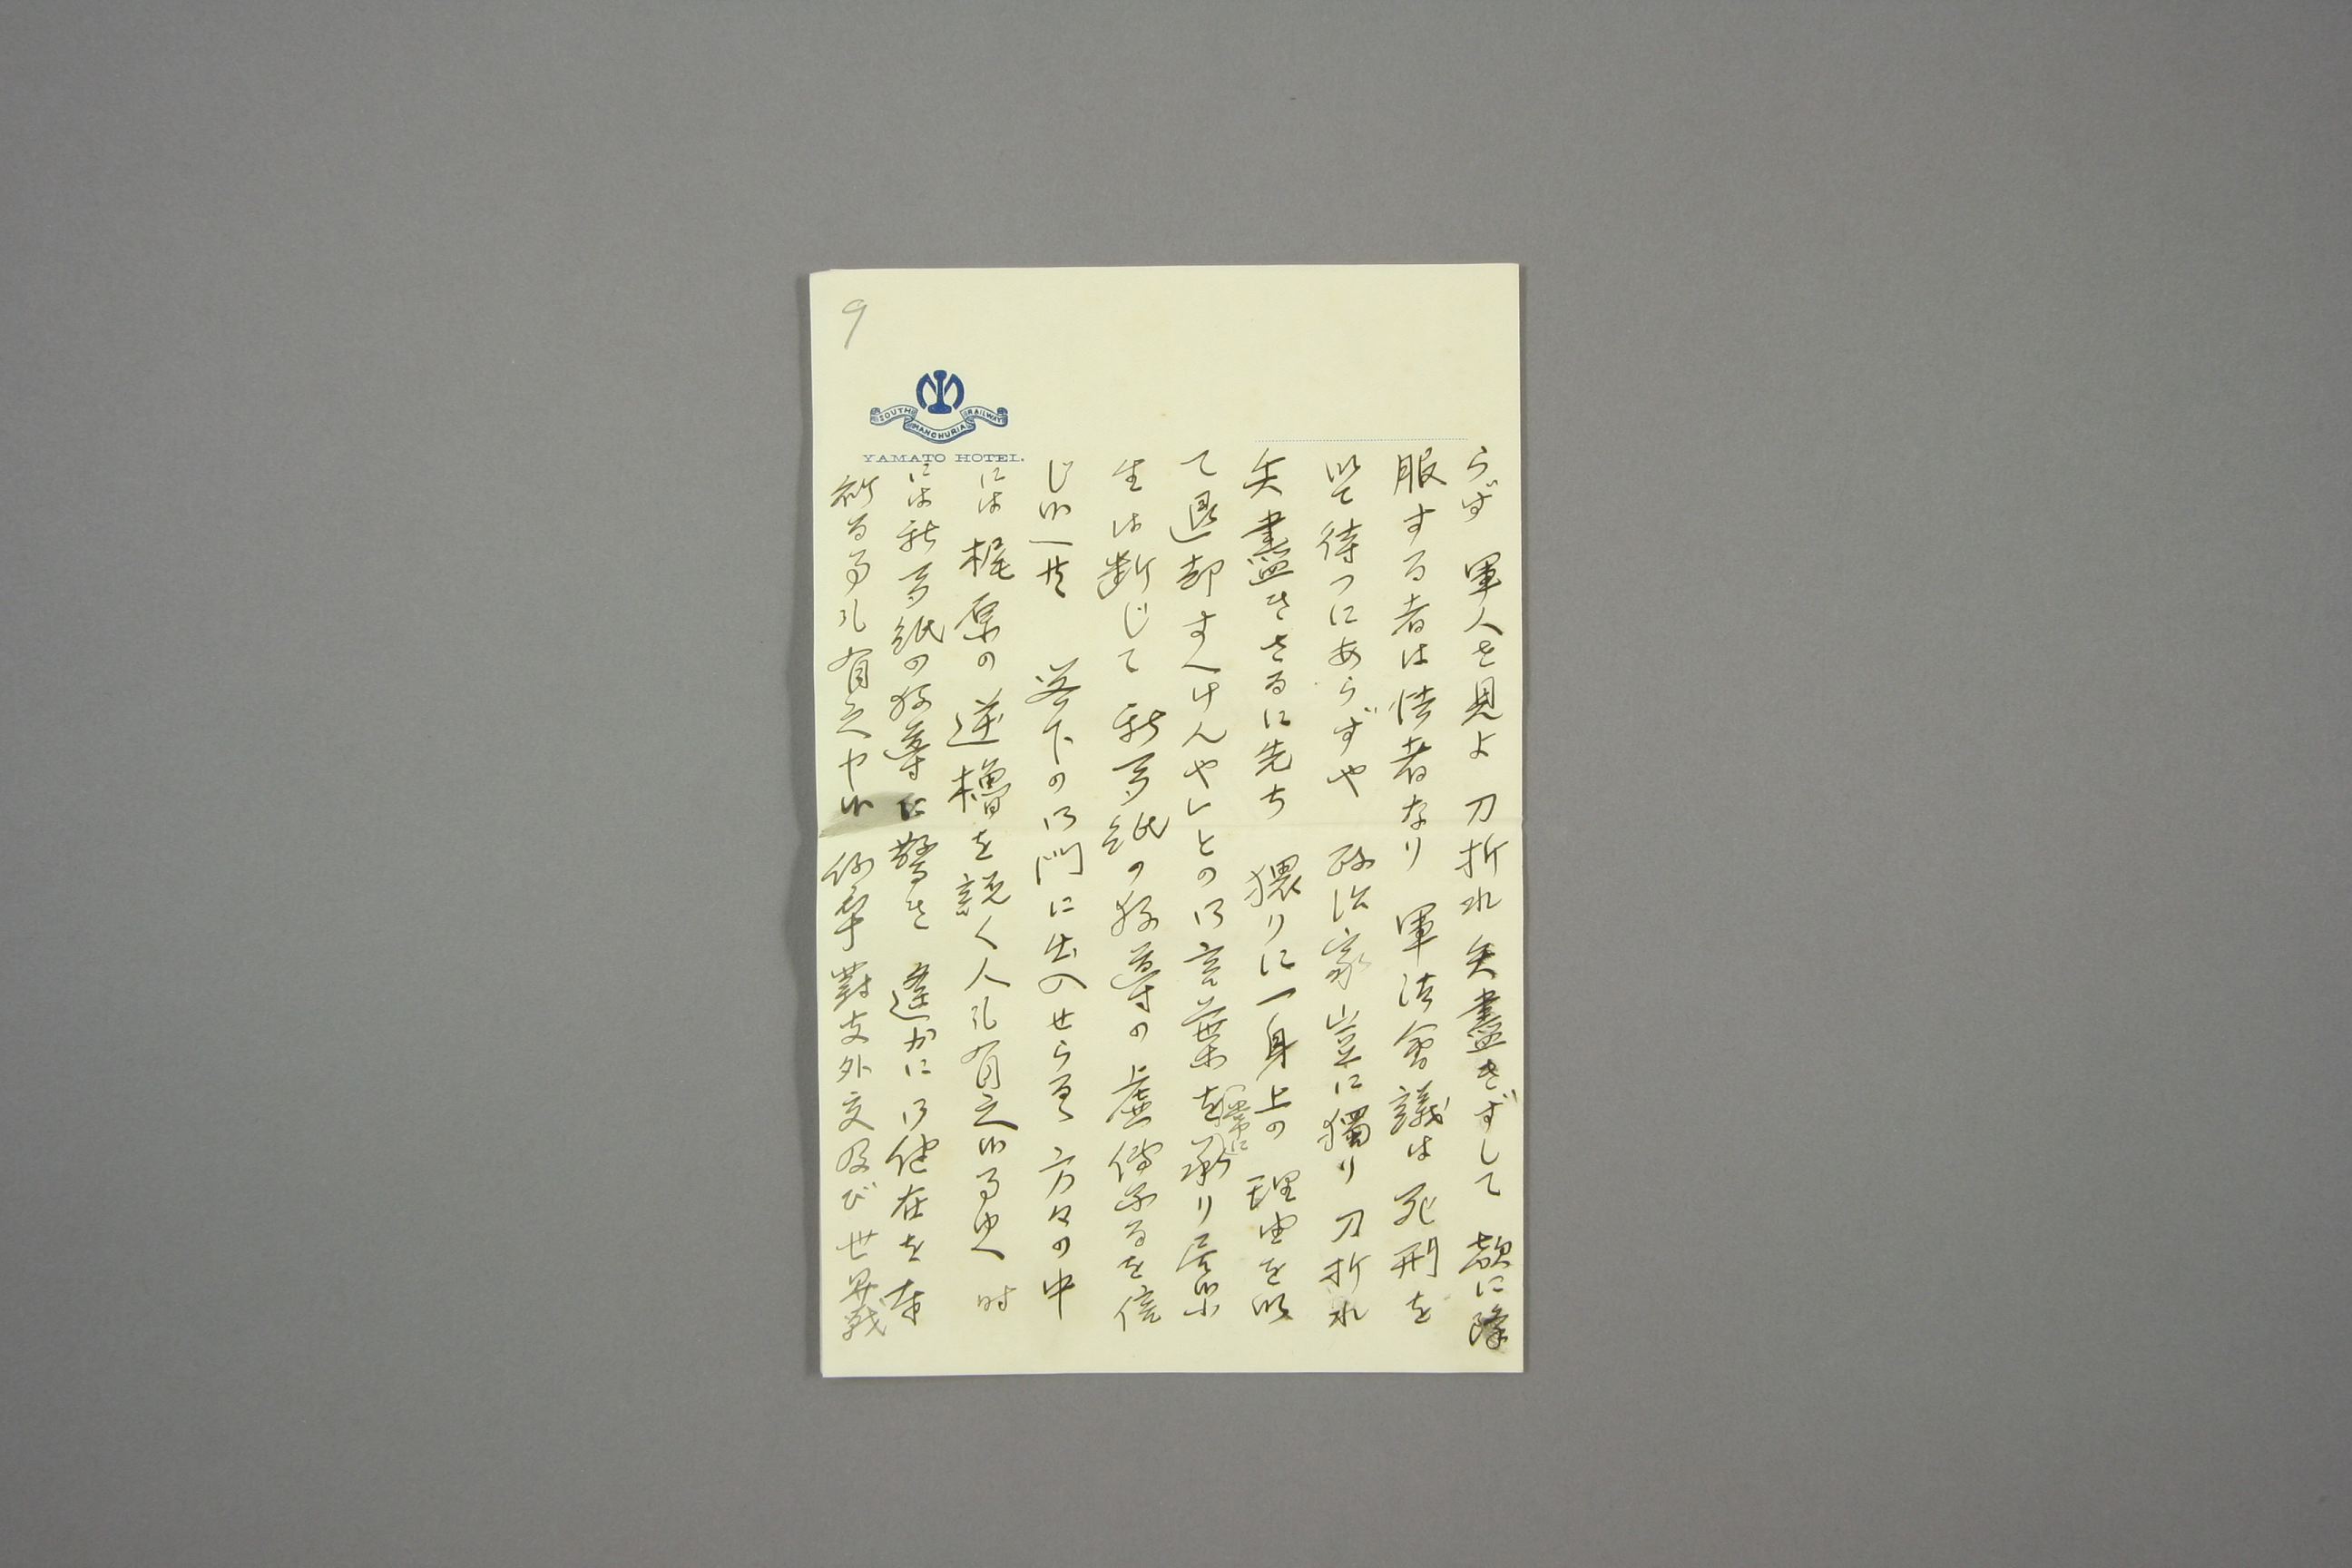 9
SOUTH MANCHURIA RAILWAY
YAMATO HOTEL.
らず 軍人を見よ 刀折れ 矢盡きずして 敵に降
服する者は 者なり 軍法會議は 死刑を
以て待つにあらずや 政治家 豈に獨り 刀折れ
矢盡きさるに先ち 猥りに一身上の 理由を以
て退却すへけんやしとの御言葉を承り居候
生は断じて 新聞紙の 虚偽なるを信
じ候へ共 閣下の御門に出入せらる 方々の中
には 梶原の 逆櫓を説く人も有之候ゆへ 時
には新聞紙の に驚き 遙かに御健在を
祈る事も有之申候 對支外交及び 世界戦